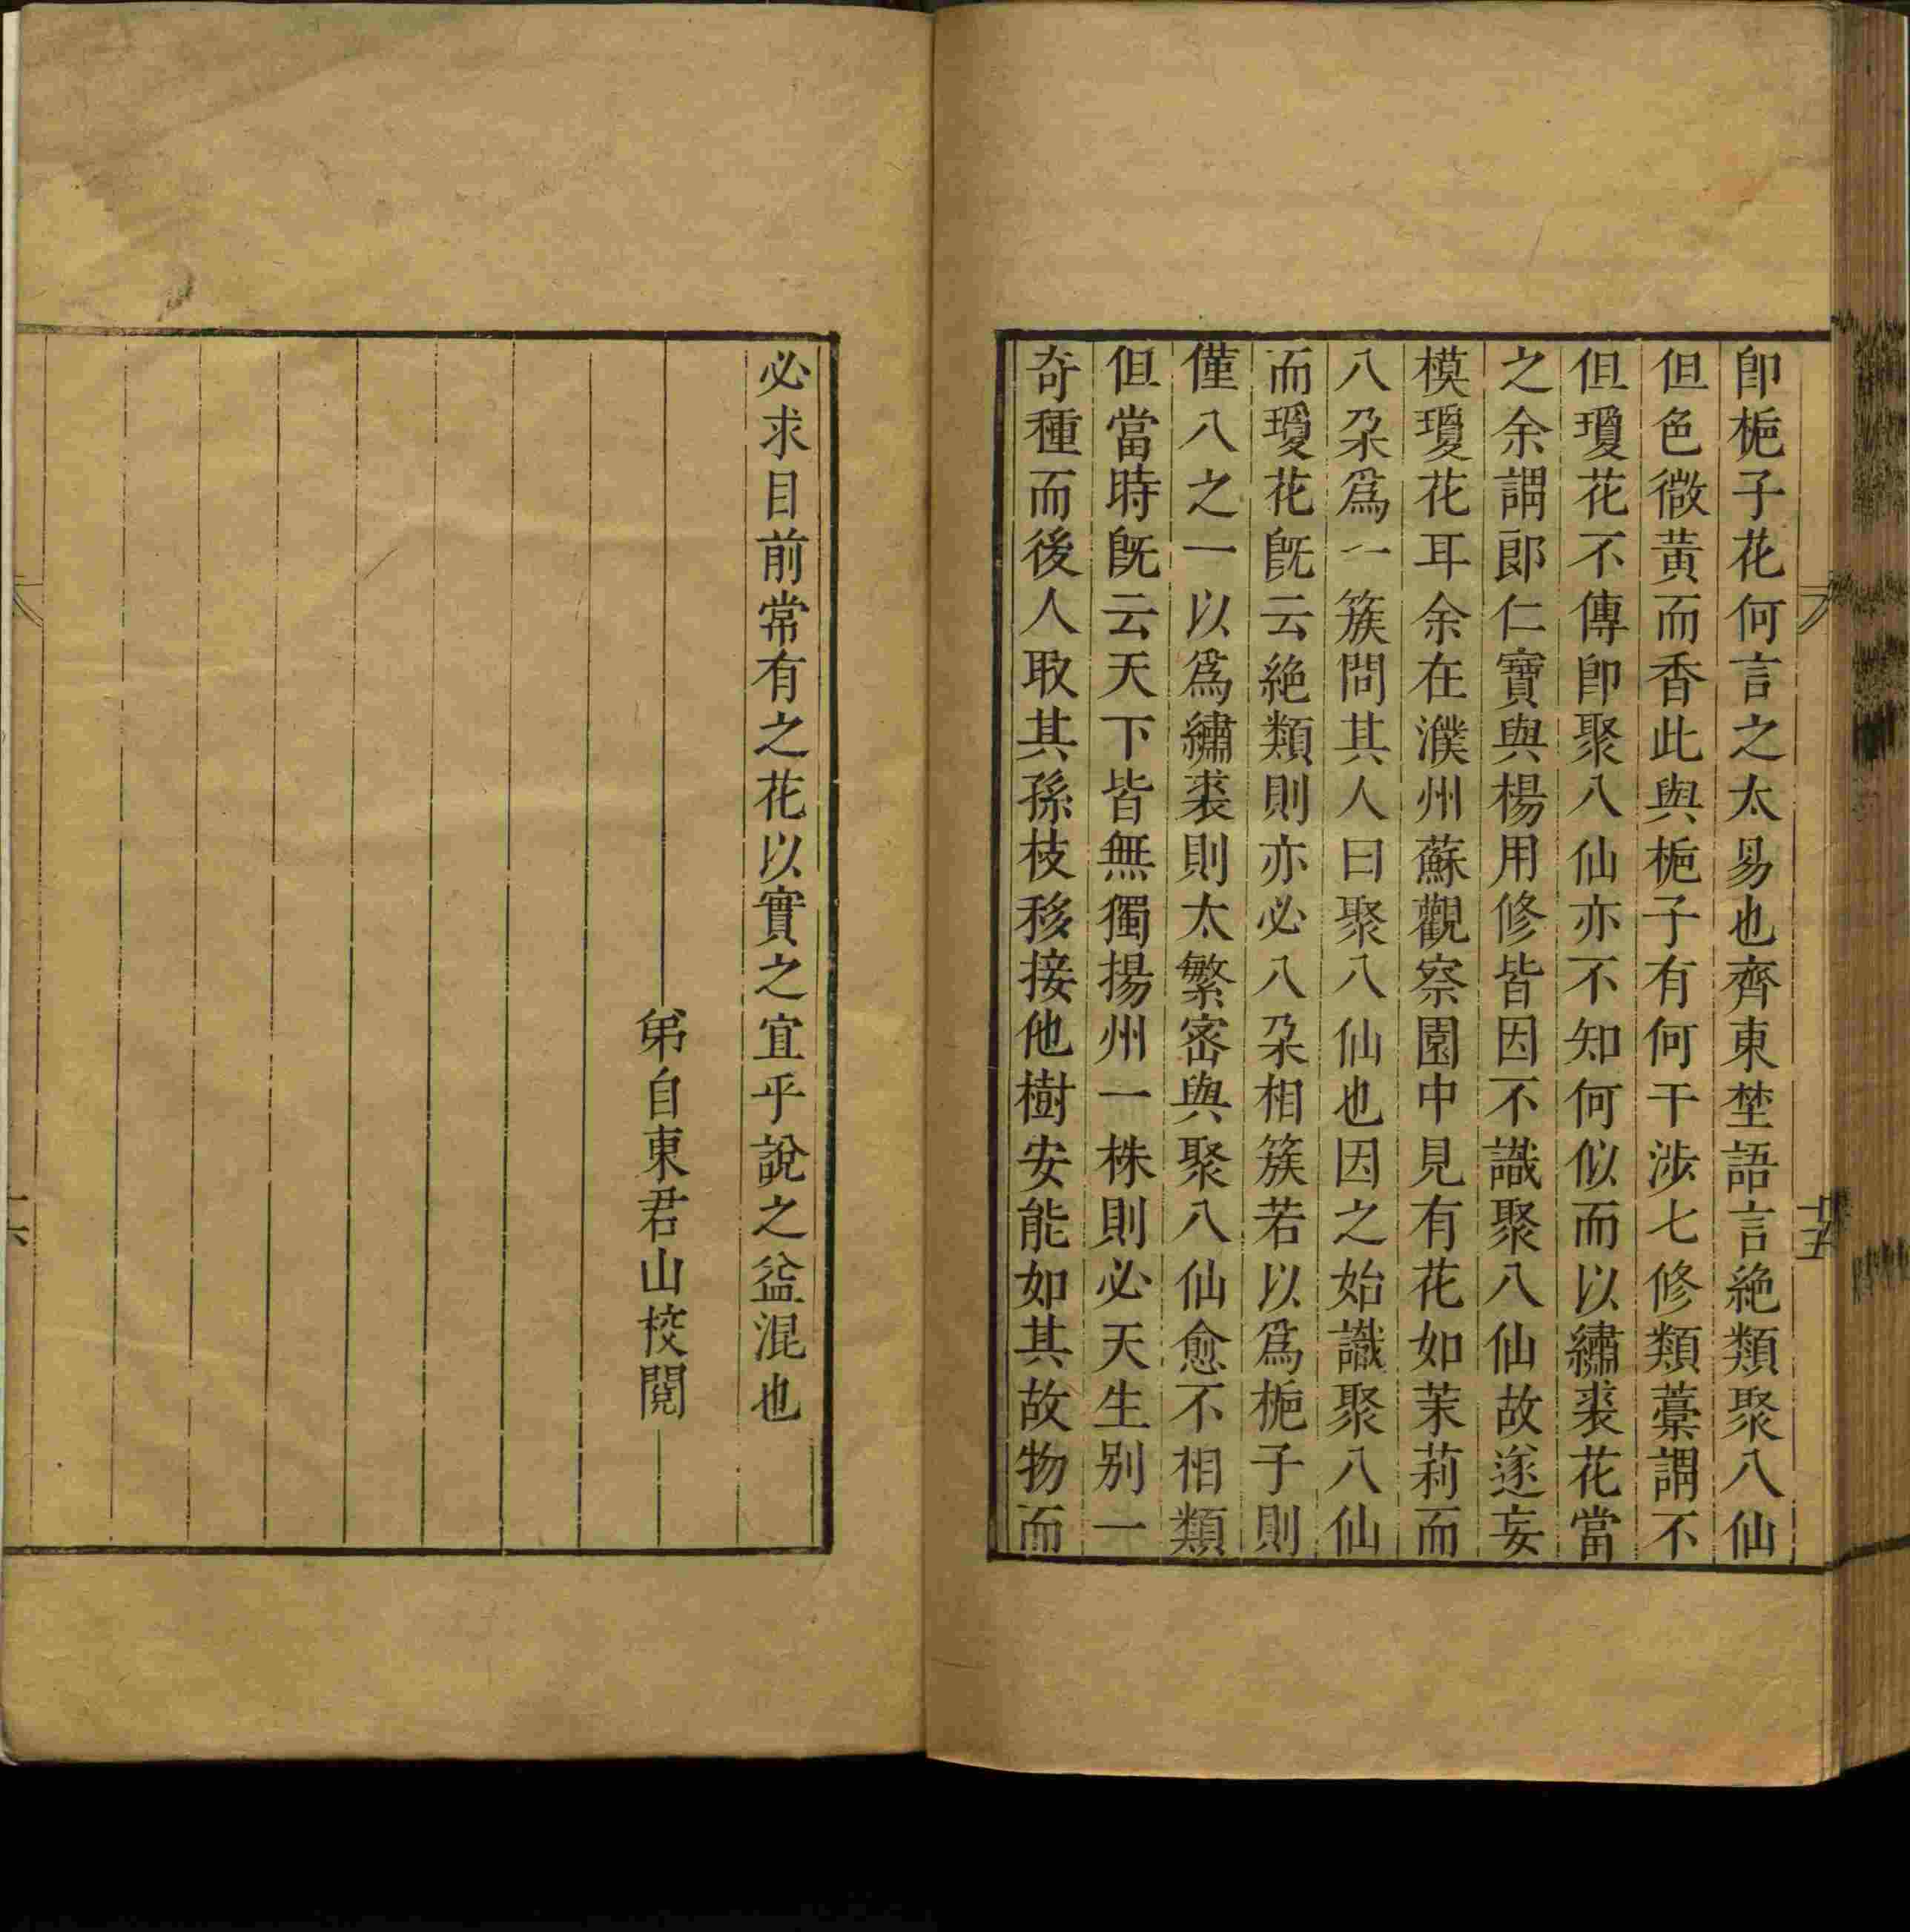 卽梔子花何言之太易也齊東埜語言絶類聚八仙
但色微黃而香此與梔子有何干涉七修類藁謂不
但瓊花不傳卽聚八仙亦不知何似而以繡裘花當
之余謂郎仁寶與楊用修皆因不識聚八仙故遂妄
模瓊花耳余在濮州蘇觀察園中見有花如茉莉而
八朶爲一簇問其人曰聚八仙也因之始識聚八仙
而瓊花旣云絶類則亦必八朶相簇若以爲梔子則
僅八之一以爲繡裘則太繁密與聚八仙愈不相類
但當時旣云天下皆無獨揚州一株則必天生别一
奇種而後人取其孫枝移接他樹安能如其故物而
十五
必求目前常有之花以實之宜乎說之益混也
弟自東君山校閱
十六